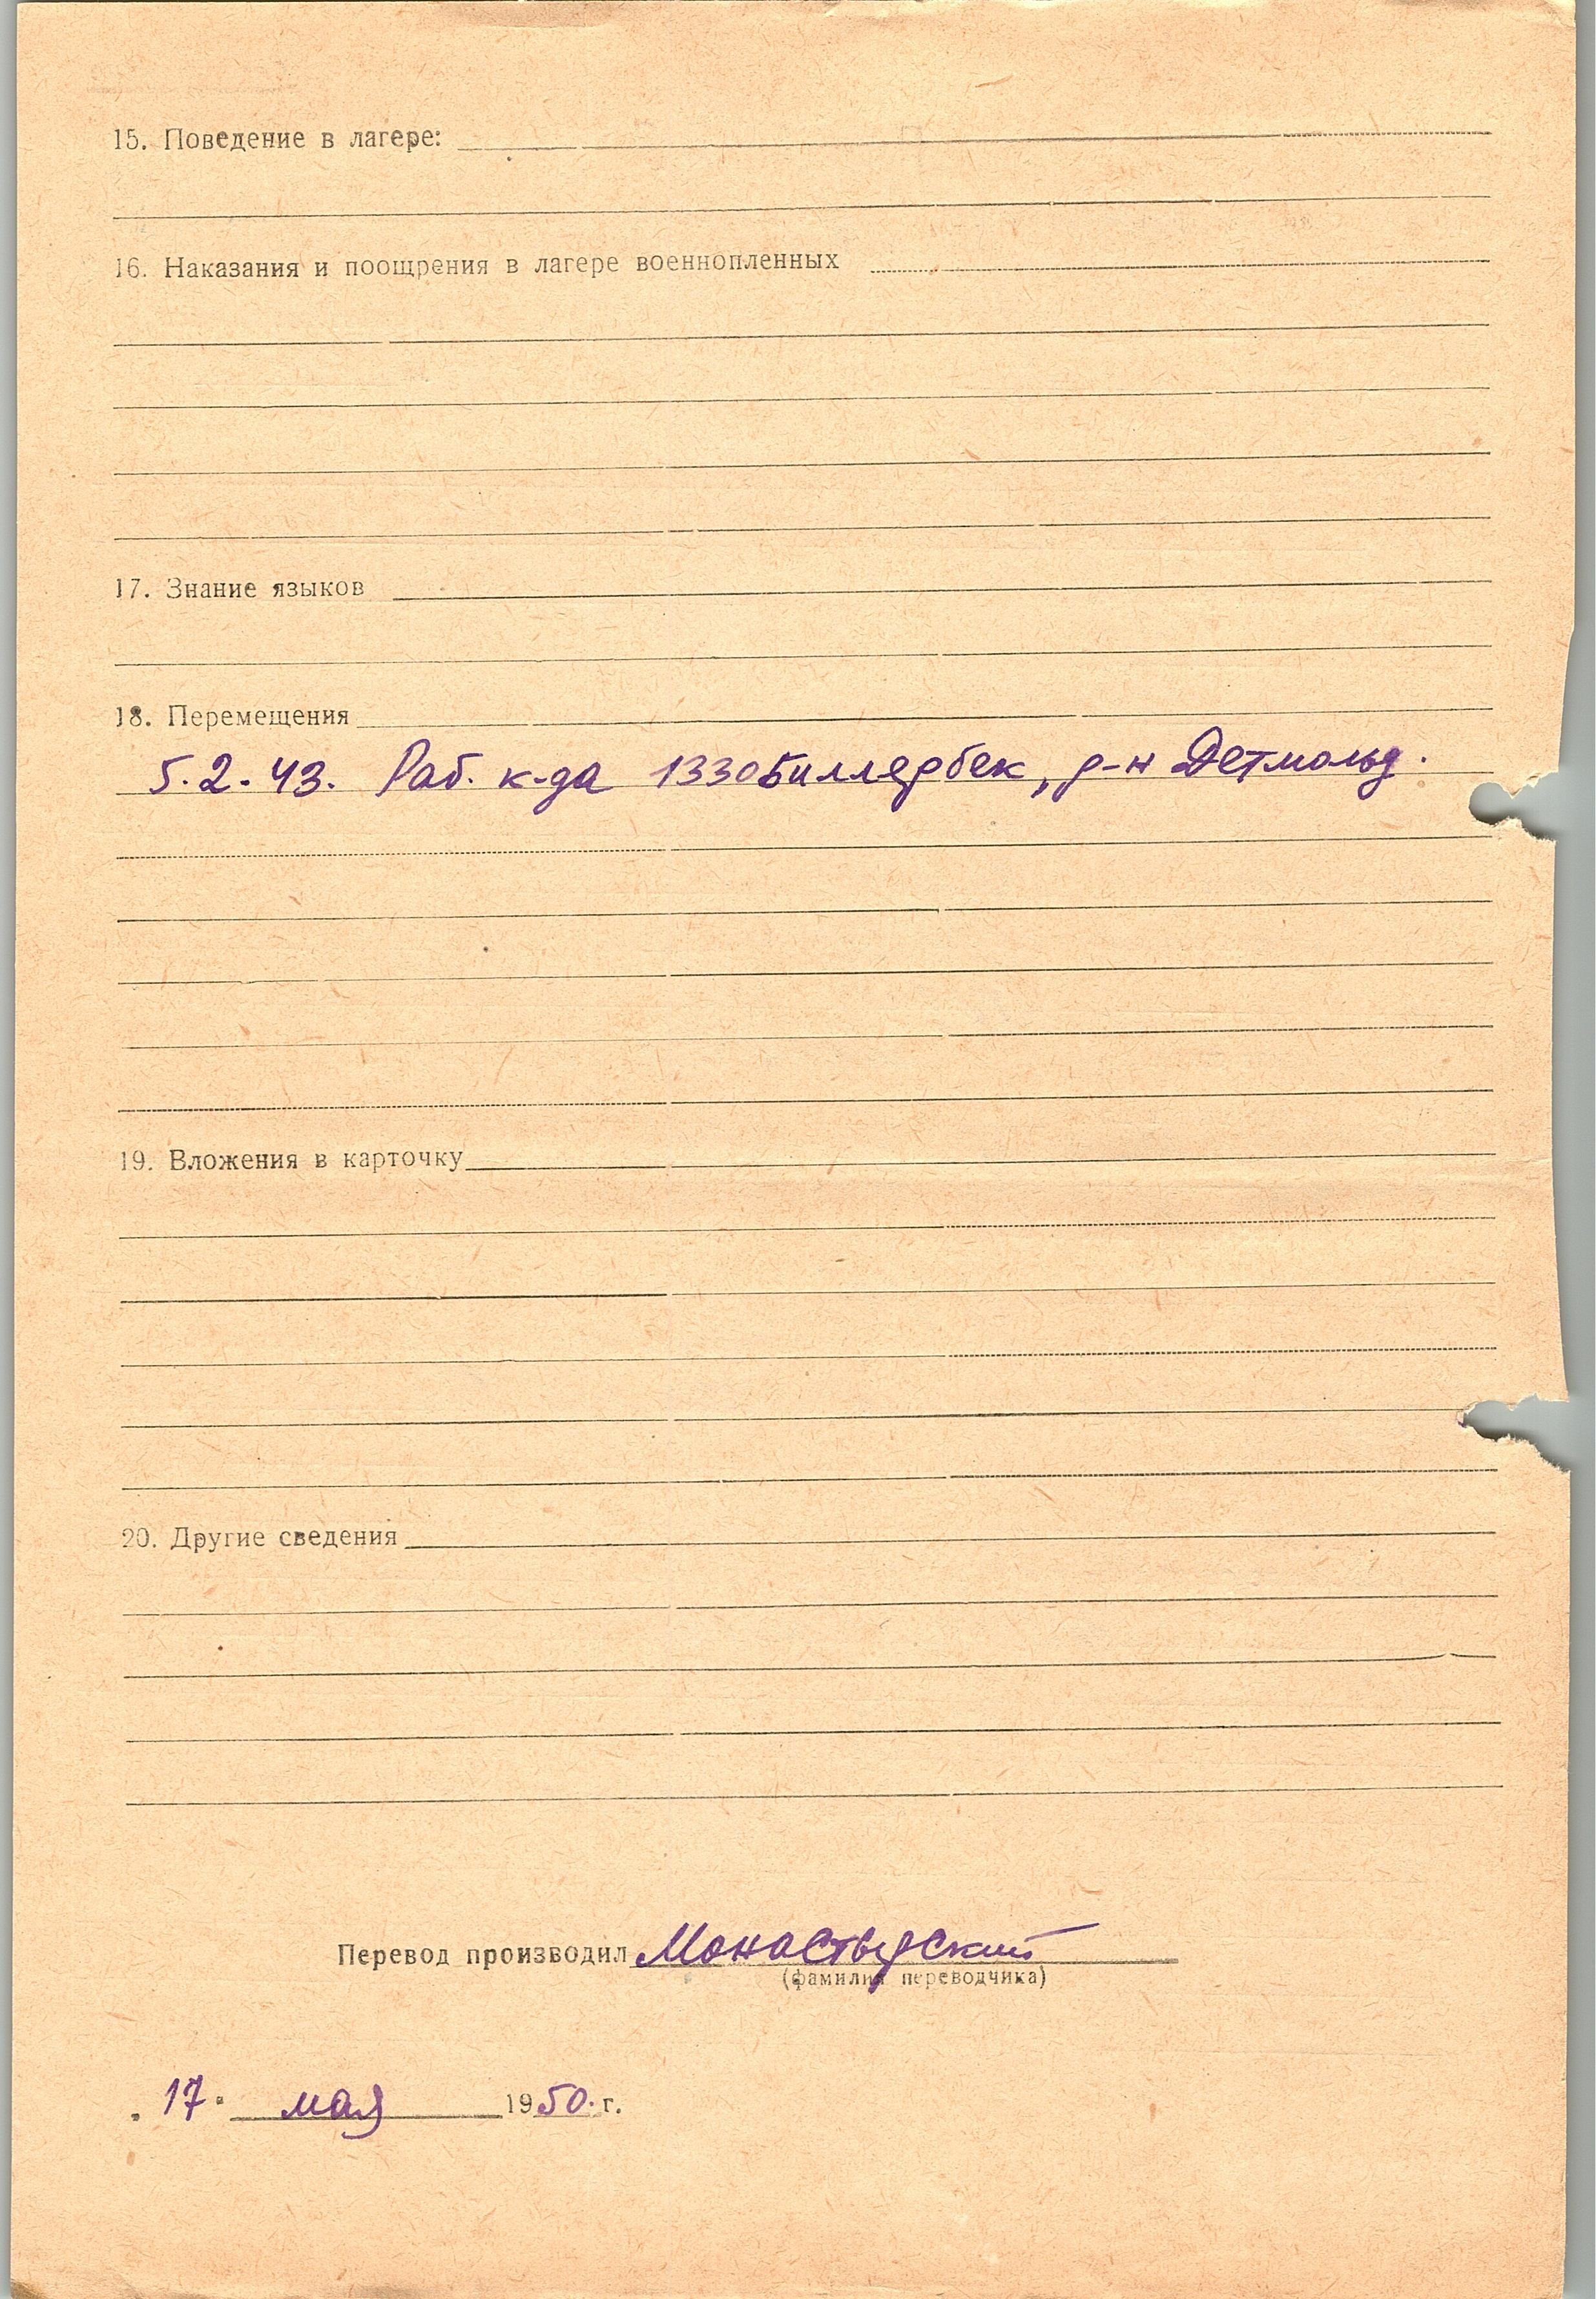 15. Поведение в лагере:
16. Наказания и поощрения в лагере военнопленных
17. Знание языков
18. Перемещения
5.2.43. Раб. к-да 1330 Биллербек, р-н Детмольд.
19. Вложения в карточку
20. Другие сведения
Перевод производил Монастырский
(фамилия переводчика)
„17" мая 1950 г.